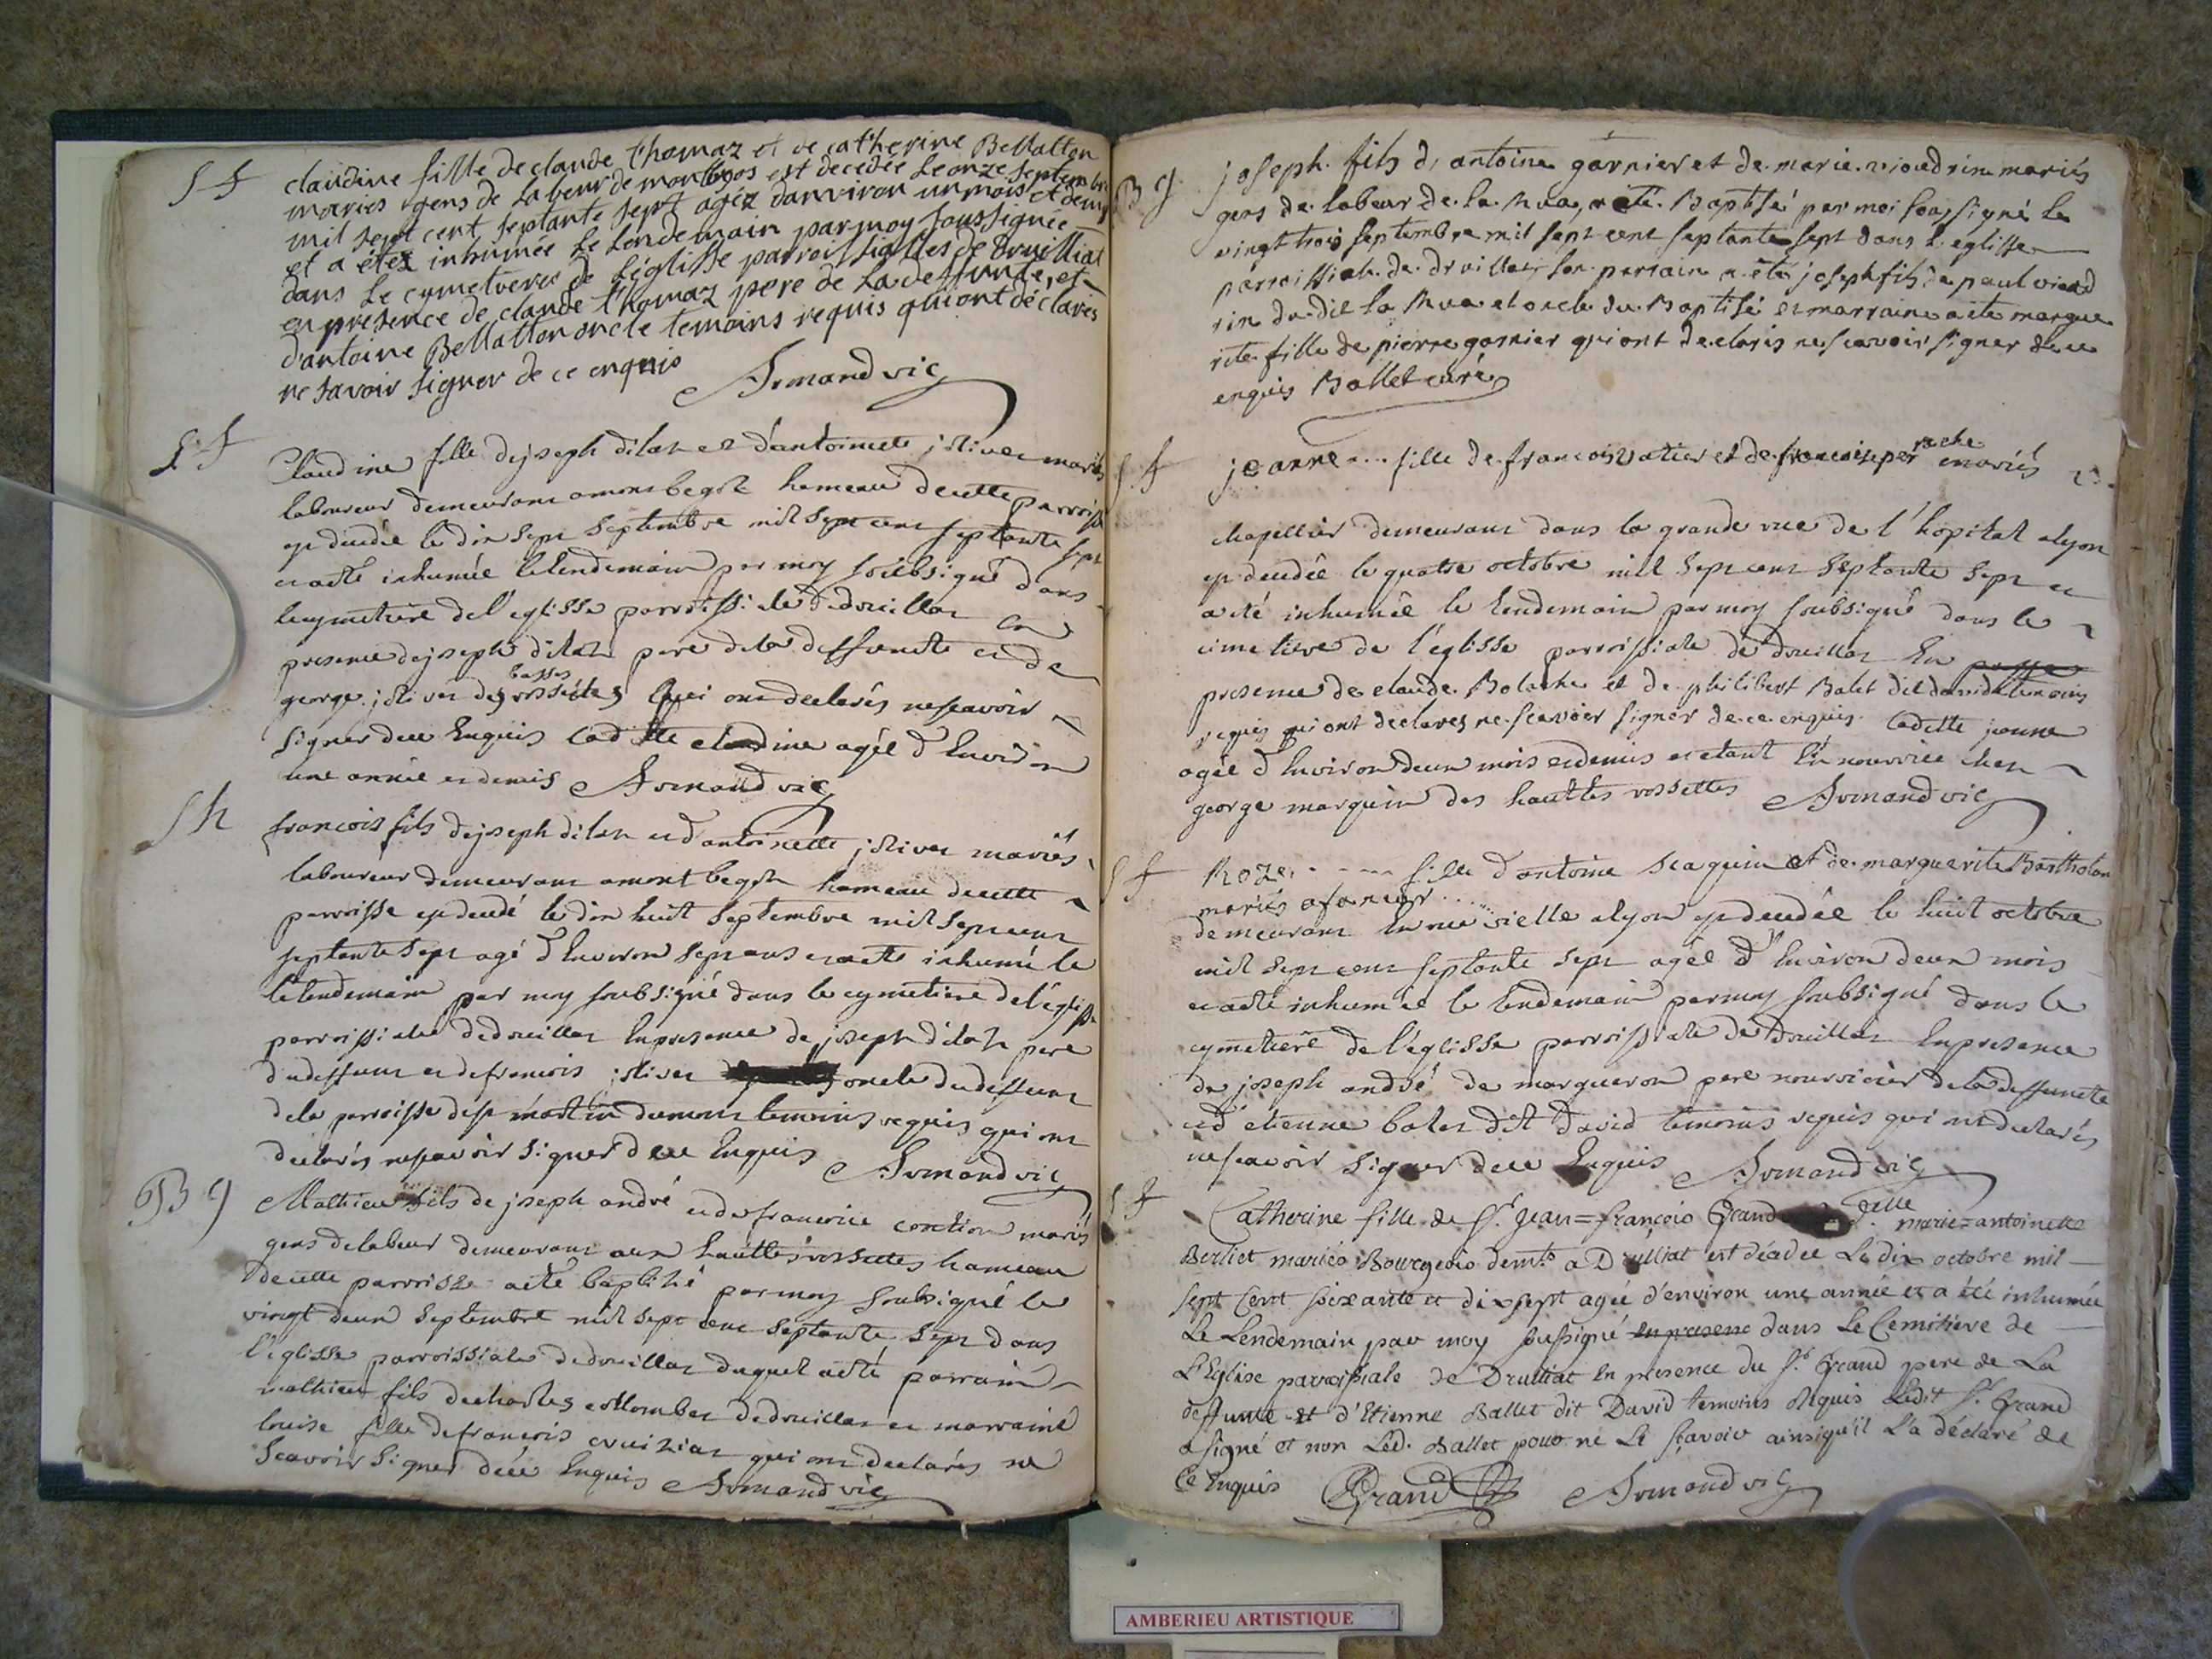 S f
claudine fille de claude thomaz et de catherine Bellatton
mariés gens de labeur de monbegos est decedée le onze septembre
mil sept cent septante sept agéz danviron un mois et demy
et a étéz inhumée le lendemain par moy soussignée
dans le cymetverer de l'églisse parroissialles de druilliat
en presence de claude thomaz pere de la deffunde, et
d'antoine Bellatton oncle temoins requis qui ont déclarés
ne savoir signer de ce enquis Armand vic
S f
Claudine fille de joseph dilas et d'antoinette jstiver mariés
laboureur demeurans a mont begoz hameau de cette parroisse
est decedée le dix sept septembre mil sept cent septante sept
et a eté inhumée le lendemain par moy soubsigné dans
le cymetiere de l'eglisse parroissiale de drouillas en
presence de joseph dilas pere de la deffuncte et de
george jstiver des basses vossettes qui ont declarés ne scavoir
signer de ce enquis la ditte claudine agée d'environ
une année et demis Armand vic
S h
francois fils de joseph dilas et d'antoinette jstiver mariés
laboureur demeurans a mont begoz hameau de cette
parroisse est decedé le dix huit septembre mil sept cent
septante sept agé d'environ sept ans et a eté inhumé le
le lendemain par moy soubsigné dans le cymetiere de l'églisse
parroissiale de drouillas en presence de joseph dilas pere
du deffunt et de francois jstiver oncle du deffunt
de la parroisse de st martin du mont temoins requis qui ont
declarés ne scavoir signer de ce enquis Armand vic
B g
Mathieu fils de joseph andré et de francoise conction mariés
gens de labeur demeurans aux hauttes vossettes hameau
de cette parroisse a eté baptisé par moy soubsigné le
vingt deux septembre mil sept cent septante sept dans
l'eglisse parroissiale de drouillas duquel a eté parrain
mathieu fils de charles collomber de drouillas et marraine
louise fille de francois cruiziat qui ont declarés ne
scavoir signer de ce enquis Armand vic
B g
joseph fils d'antoine garnier et de marie vioudrin mariés
gens de labeur de la Rua, a eté Baptisé par moi soussigné le
vingt trois septembre mil sept cent septante sept dans l'eglisse
parroissiale de druillat, son parrain a eté joseph fils de paul vioud
rin du dit la Rua et oncle du Baptisé et marraine a eté margue
rite fille de pierre garnier qui ont declaris ne scavoir signer de ce
enquis Ballet curé
S f
jeanne fille de francois vatier et de francoise perrache mariés
chapellier demeurans dans la grande rue de l'hopital a lyon
est decedée le quatre octobre mil sept cent septante sept et
a eté inhumée le lendemain par moy soubsigné dans le
cimetiere de l'églisse parroissiale de drouillas en
presence de claude Bolache et de philibert Balet dit david temoins
requis qui ont declares ne scavoir signer de ce enquis ladette jeanne
agée d'environ deux mois et demis et etant en nourrice chez
george marquin des hauttes vossettes Armand vic
S f
Roze fille d'antoine seaquin et de marguerite Bartholon
mariés afaneur
demeurans en rue vielle a lyon est decedée le huit octobre
mil sept cent septante sept agée d'environ deux mois
et a eté inhumée le lendemain par moy soubsigné dans le
cymetiere de l'églisse parroissiale de drouillas en presence
de joseph andré de margueron pere nourricier de la deffuncte
et d'etienne balet dit david temoins requis qui ont declarés
ne scavoir signer de ce enquis Armand vic
S f
Catherine fille de Sr. Jean=françois Grand Delle marie=antoinette
Berliet mariés Bourgeois demts a Druilliat est décédee Le dix octobre mil
sept Cent soixante et dix sept agée d'environ une année et a été inhumée
Le Lendemain par moy sussigné en presenc dans Le Cemitiere de
L'Eglise parroissiale de Druilliat en presence du Sr. Grand pere de La
deffunte et d'Etienne Ballet dit David temoins Requis Ledit Sr. Grand
a signé et non Led. Ballet pour ne Le sçavoir ainsiqu'il L'a déclaré de
Ce Enquis Grand Armand vic
AMBERIEU ARTISTIQUE